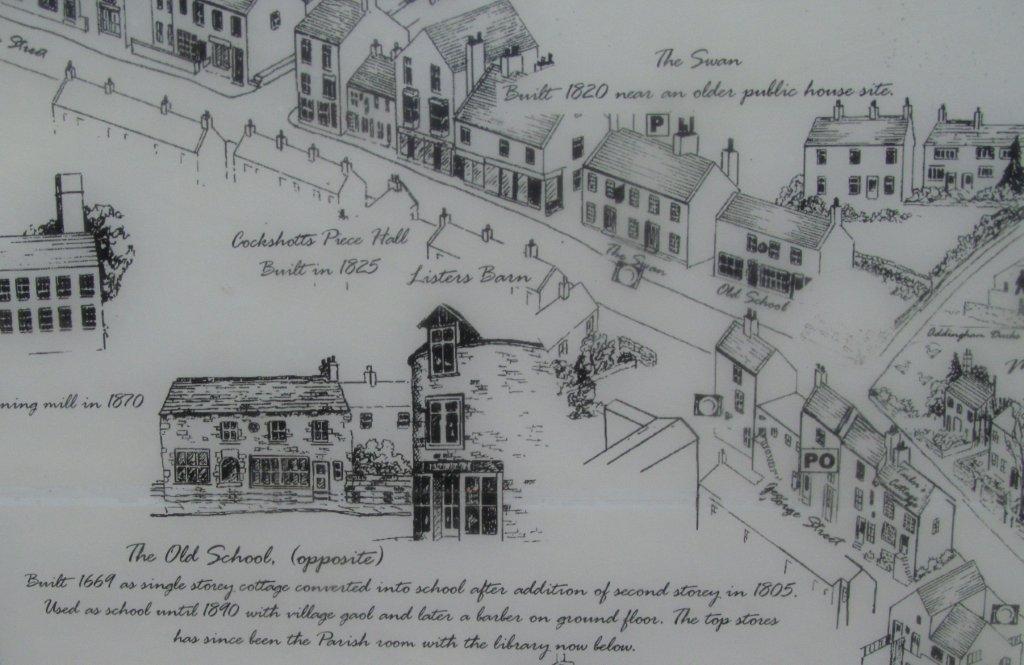 Street
The Swan
Built 1820 near an older public house site.
P
Cockshotts Piece Hall
Built in 1825
Listers Barn
The Swan
Old School
Addingham Ducks
ning mill in 1870
PO
George Street
Cottage
The Old School, (opposite)
Built 1669 as single storey cottage converted into school after addition of second storey in 1805.
Used as school until 1890 with village gaol and later a barber on ground floor. The top stores
has since been the Parish room with the library now below.